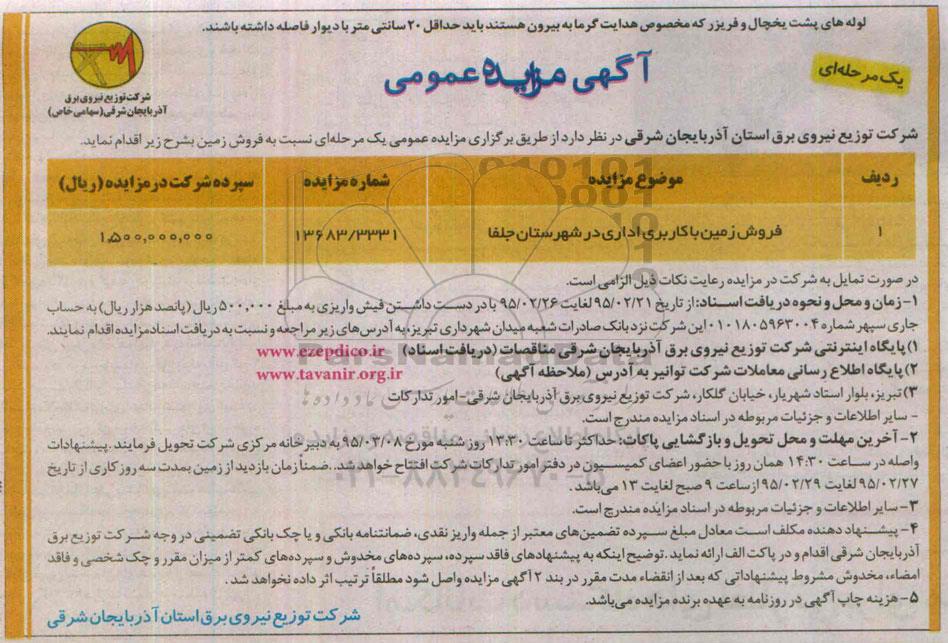 لوله های پشت یخچال و فریزر که مخصوص هدایت گرما به بیرون هستند باید حداقل ۲۰ سانتی متر با دیوار فاصله داشته باشند.
یک مرحله‌ای
آگهی مزایده عمومی
شرکت توزیع نیروی برق
آذربایجان شرقی (سهامی خاص)
شرکت توزیع نیروی برق استان آذربایجان شرقی در نظر دارد از طریق برگزاری مزایده عمومی یک مرحله‌ای نسبت به فروش زمین بشرح زیر اقدام نماید.
ردیف موضوع مزایده شماره مزایده سپرده شرکت در مزایده (ریال)
۱ فروش زمین با کاربری اداری در شهرستان جلفا ۱۳۶۸۳/۳۳۳۱ ۱,۵۰۰,۰۰۰,۰۰۰
در صورت تمایل به شرکت در مزایده رعایت نکات ذیل الزامی است.
۱- زمان و محل و نحوه دریافت اسناد: از تاریخ ۹۵/۰۲/۲۱ لغایت ۹۵/۰۲/۲۶ با در دست داشتن فیش واریزی به مبلغ ۵۰۰,۰۰۰ ریال (پانصد هزار ریال) به حساب
جاری سپهر شماره ۰۱۰۱۸۰۵۹۶۳۰۰۴ این شرکت نزد بانک صادرات شعبه میدان شهرداری تبریز، به آدرس‌های زیر مراجعه و نسبت به دریافت اسناد مزایده اقدام نمایند.
۱) پایگاه اینترنتی شرکت توزیع نیروی برق آذربایجان شرقی مناقصات (دریافت اسناد) www.ezepdico.ir
۲) پایگاه اطلاع رسانی معاملات شرکت توانیر به آدرس (ملاحظه آگهی) www.tavanir.org.ir
۳) تبریز، بلوار استاد شهریار، خیابان گلکار، شرکت توزیع نیروی برق آذربایجان شرقی - امور تدارکات
- سایر اطلاعات و جزئیات مربوطه در اسناد مزایده مندرج است.
۲- آخرین مهلت و محل تحویل و بازگشایی پاکات: حداکثر تا ساعت ۱۳:۳۰ روز شنبه مورخ ۹۵/۰۳/۰۸ به دبیرخانه مرکزی شرکت تحویل فرمایند. پیشنهادات
واصله در ساعت ۱۴:۳۰ همان روز با حضور اعضای کمیسیون در دفتر امور تدارکات شرکت افتتاح خواهد شد. ضمناً زمان بازدید از زمین بمدت سه روز کاری از تاریخ
۹۵/۰۲/۲۷ لغایت ۹۵/۰۲/۲۹ از ساعت ۹ صبح لغایت ۱۳ می‌باشد.
۳- سایر اطلاعات و جزئیات مربوطه در اسناد مزایده مندرج است.
۴- پیشنهاد دهنده مکلف است معادل مبلغ سپرده تضمین‌های معتبر از جمله واریز نقدی، ضمانتنامه بانکی و یا چک بانکی تضمینی در وجه شرکت توزیع برق
آذربایجان شرقی اقدام و در پاکت الف ارائه نماید. توضیح اینکه به پیشنهادهای فاقد سپرده، سپرده‌های مخدوش و سپرده‌های کمتر از میزان مقرر و چک شخصی و فاقد
امضاء، مخدوش مشروط پیشنهاداتی که بعد از انقضاء مدت مقرر در بند ۲ آگهی مزایده واصل شود مطلقاً ترتیب اثر داده نخواهد شد.
۵- هزینه چاپ آگهی در روزنامه به عهده برنده مزایده می‌باشد.
شرکت توزیع نیروی برق استان آذربایجان شرقی